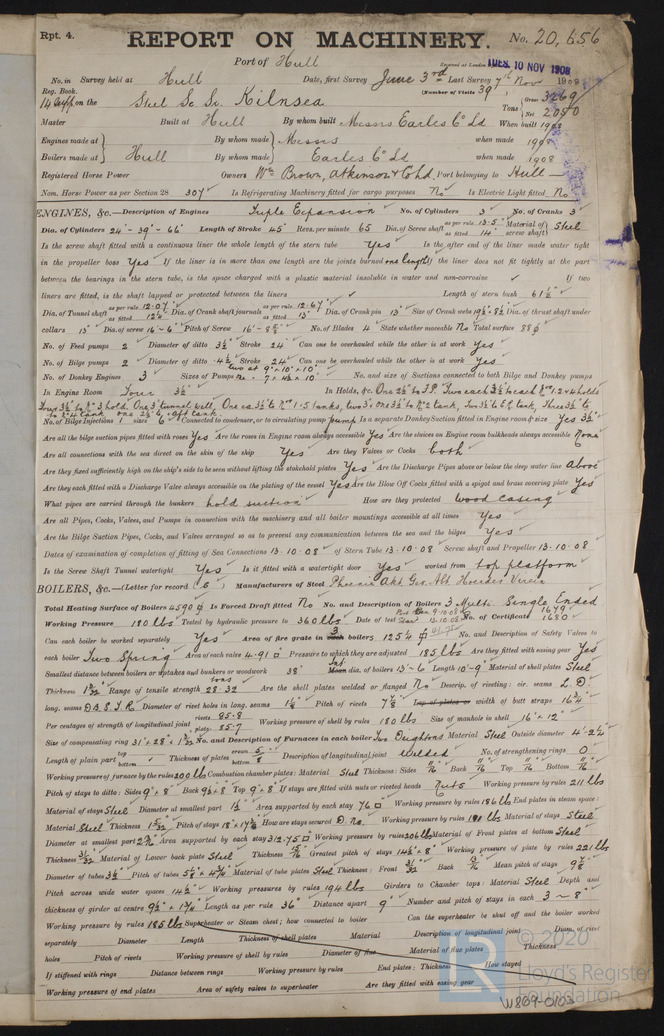 Rpt. 4. REPORT ON MACHINERY. No. 20,656
Port of Hull
Received at London TUES. 10 NOV 1908
No. in Survey held at Hull Date, first Survey June 3rd Last Survey 7th Nov 1908
Reg. Book. (Number of Visits 39)
on the Steel Sc Sr. Kilnsea Tons { Gross 3269 Net 2050
Master Built at Hull By whom built Messrs Earles Co Ld When built 1908
Engines made at By whom made Messrs when made 1908
Boilers made at Hull By whom made Earles Co Ld when made 1908
Registered Horse Power Owners Wm Brown, Atkinson & Co Ld Port belonging to Hull
Nom. Horse Power as per Section 28 307 Is Refrigerating Machinery fitted for cargo purposes No Is Electric Light fitted No
ENGINES, &c.—Description of Engines Triple Expansion No. of Cylinders 3 No. of Cranks 3
Dia. of Cylinders 24"-39"-66" Length of Stroke 45" Revs. per minute 65 Dia. of Screw shaft as per rule 13.5" as fitted 14" Material of screw shaft Steel
Is the screw shaft fitted with a continuous liner the whole length of the stern tube Yes Is the after end of the liner made water tight
in the propeller boss Yes If the liner is in more than one length are the joints burned one length If the liner does not fit tightly at the part
between the bearings in the stern tube, is the space charged with a plastic material insoluble in water and non-corrosive If two
liners are fitted, is the shaft lapped or protected between the liners Length of stern bush 61½"
Dia. of Tunnel shaft as per rule 12.07" as fitted Dia. of Crank shaft journals as per rule 12.67" as fitted 13" Dia. of Crank pin 13" Size of Crank webs Dia. of thrust shaft under
collars 13" Dia. of screw 16'-6" Pitch of Screw 16'-8" No. of Blades 4 State whether moveable No Total surface 88
No. of Feed pumps 2 Diameter of ditto 3½" Stroke 24" Can one be overhauled while the other is at work Yes
No. of Bilge pumps 2 Diameter of ditto 4½" Stroke 24" Can one be overhauled while the other is at work Yes
No. of Donkey Engines 3 Sizes of Pumps No. and size of Suctions connected to both Bilge and Donkey pumps
In Engine Room Four 3½" In Holds, &c. One 2½" to F.P. Two each 3½" to each No 1, 2 & 4 holds
Four 3½" to No 3 hold, One 3" tunnel well
No. of Bilge Injections 1 sizes 6" Connected to condenser, or to circulating pump pump Is a separate Donkey Suction fitted in Engine room & size Yes 3½"
Are all the bilge suction pipes fitted with roses Yes Are the roses in Engine room always accessible Yes Are the sluices on Engine room bulkheads always accessible None
Are all connections with the sea direct on the skin of the ship Yes Are they Valves or Cocks both
Are they fixed sufficiently high on the ship's side to be seen without lifting the stokehold plates Yes Are the Discharge Pipes above or below the deep water line Above
Are they each fitted with a Discharge Valve always accessible on the plating of the vessel Yes Are the Blow Off Cocks fitted with a spigot and brass covering plate Yes
What pipes are carried through the bunkers hold suction How are they protected wood casing
Are all Pipes, Cocks, Valves, and Pumps in connection with the machinery and all boiler mountings accessible at all times Yes
Are the Bilge Suction Pipes, Cocks, and Valves arranged so as to prevent any communication between the sea and the bilges Yes
Dates of examination of completion of fitting of Sea Connections 13.10.08 of Stern Tube 13.10.08 Screw shaft and Propeller 13.10.08
Is the Screw Shaft Tunnel watertight Yes Is it fitted with a watertight door Yes worked from top platform
BOILERS, &c.—(Letter for record (S)) Manufacturers of Steel Phoenix Akt. Ges. Abt Hoerder Verein
Total Heating Surface of Boilers 4590 Is Forced Draft fitted No No. and Description of Boilers 3 Mult. Single Ended
Working Pressure 180 lbs Tested by hydraulic pressure to 360 lbs Date of test No. of Certificate 1679 1680
Can each boiler be worked separately Yes Area of fire grate in 3 boilers 125.4 No. and Description of Safety Valves to
each boiler Two Spring Area of each valve 4.91 Pressure to which they are adjusted 185 lbs Are they fitted with easing gear Yes
Smallest distance between boilers or uptakes and bunkers or woodwork 38" Int dia. of boilers 13'-6" Length 10'-9" Material of shell plates Steel
Thickness Range of tensile strength 28-32 tons Are the shell plates welded or flanged No Descrip. of riveting: cir. seams L.D.
long. seams D.B.S.T.R. Diameter of rivet holes in long. seams Pitch of rivets 7⅞" Lap of plates or width of butt straps
Per centages of strength of longitudinal joint rivets 85.8 plate 85.7 Working pressure of shell by rules 180 lbs Size of manhole in shell 16" x 12"
Size of compensating ring No. and Description of Furnaces in each boiler Two Deightons Material Steel Outside diameter
Length of plain part top bottom Thickness of plates crown bottom Description of longitudinal joint Welded No. of strengthening rings 0
Working pressure of furnace by the rules 200 lbs Combustion chamber plates: Material Steel Thickness: Sides Back Top Bottom
Pitch of stays to ditto: Sides 9" x 8" Back Top 9" x 8" If stays are fitted with nuts or riveted heads Nuts Working pressure by rules 211 lbs
Material of stays Steel Diameter at smallest part Area supported by each stay 76 Working pressure by rules 186 lb End plates in steam space:
Material Steel Thickness Pitch of stays How are stays secured D.N. Working pressure by rules 181 lbs Material of stays Steel
Diameter at smallest part Area supported by each stay 312.75 Working pressure by rules 206 lbs Material of Front plates at bottom Steel
Thickness Material of Lower back plate Steel Thickness Greatest pitch of stays Working pressure of plate by rules 221 lbs
Diameter of tubes 3½" Pitch of tubes Material of tube plates Steel Thickness: Front Back Mean pitch of stays
Pitch across wide water spaces 14½" Working pressures by rules 194 lbs Girders to Chamber tops: Material Steel Depth and
thickness of girder at centre Length as per rule 36" Distance apart 9" Number and pitch of stays in each 3 ~ 8"
Working pressure by rules 185 lbs Superheater or Steam chest; how connected to boiler Can the superheater be shut off and the boiler worked
separately Diameter Length Thickness of shell plates Material Description of longitudinal joint Diam. of rivet
holes Pitch of rivets Working pressure of shell by rules Diameter of flue Material of flue plates Thickness
If stiffened with rings Distance between rings Working pressure by rules End plates: Thickness How stayed
Working pressure of end plates Area of safety valves to superheater Are they fitted with easing gear
© 2020
LR
Lloyd's Register
Foundation
W809-0103